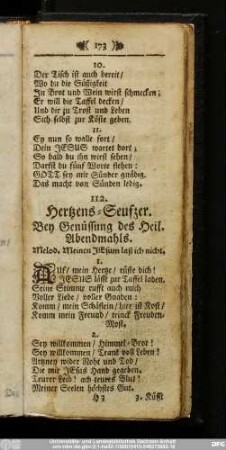 173
10.
Der Tisch ist auch bereit/
Wo du die Süßigkeit
In Brot und Wein wirst schmecken;
Er will die Taffel decken/
Und dir zu Trost und Leben
Sich selbst zur Köste geben.
11.
Ey nun so walle fort/
Dein JESUS wartet dort;
So bald du ihn wirst sehen/
Darfst du fünf Worte flehen:
GOTT sey mir Sünder gnädig.
Das macht von Sünden ledig.
112.
Hertzens-Seufzer.
Bey Geniessung des Heil.
Abendmahls.
Melod. Meinen JEsum laß ich nicht.
1.
Auf/ mein Hertze/ rüste dich!
JESUS läßt zur Taffel laden.
Seine Stimme rufft auch mich
Voller Liebe/ voller Gnaden:
Komm/ mein Schäflein/ hier ist Kost/
Komm mein Freund/ trinck Freuden-
Most.
2.
Sey willkommen/ Himmel-Brot!
Sey willkommen/ Tranck voll Leben!
Artzney wider Noht und Tod/
Die mir JEsus Hand gegeben.
Teurer Leib! ach teures Blut!
Meiner Seelen höchstes Gut.
H 3
3. Köst